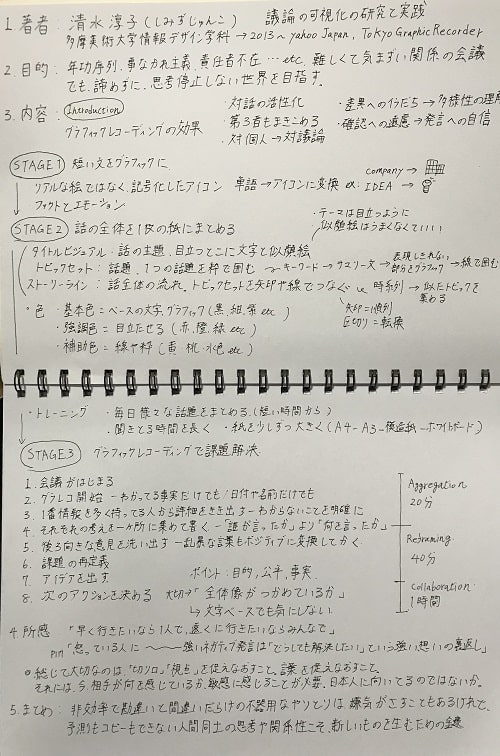 1. 著者：清水淳子（しみずじゅんこ） 議論の可視化の研究と実践
多摩美術大学情報デザイン学科 → 2013～ yahoo Japan, Tokyo Graphic Recorder
2 目的：年功序列、事なかれ主義、責任者不在…etc. 難しくて気まずい関係の会議
でも、諦めずに、思考停止しない世界を目指す。
3. 内容：Introduction
グラフィックレコーディングの効果
・対話の活性化
・第3者もまきこめる
・対個人→対議論
・差異へのイラだち→多様性の理解
・確認への遠慮→発言への自信
STAGE 1 短い文をグラフィックに
リアルな絵ではなく、記号化したアイコン 単語→アイコンに変換 ex: company →
IDEA →
ファクトとエモーション
STAGE 2 話の全体を1枚の紙にまとめる
・テーマは目立つように
似顔絵はうまくなくていい!
タイトルビジュアル：話の主題、目立つとこに文字と似顔絵
トピックセット：話題、1つの話題を枠で囲む キーワード→サマリー文→表現しきれない部分をグラフィック→線で囲む
ストーリーライン：話全体の流れ、トピックセットを矢印や線でつなぐ ex 時系列→似たトピックを集める
矢印=順列
区切り=転換
・色：基本色=ベースの文字、グラフィック(黒、紺、茶 etc)
・強調色=目立たせる(赤、橙、緑 etc)
・補助色=線や枠(黄、桃、水色 etc)
・トレーニング ・毎日様々な話題をまとめる。(短い時間から)
・聞きとる時間を長く ・紙を少しずつ大きく(A4-A3-模造紙-ホワイトボード)
STAGE3 グラフィックレコーディングで課題解決
1. 会議がはじまる
2. グラレコ開始 ーわかってる事実だけでも/日付や名前だけでも
3. 1番情報を多く持ってる人から詳細をきき出すーわからないことを明確に
4. それぞれの考えを一ヶ所に集めて書く ー「誰が言ったか」より「何を言ったか」
5. 後ろ向きな意見を洗い出す ー乱暴な言葉もポジティブに変換してかく
6. 課題の再定義
7. アイデアを出す
8. 次のアクションを決める
ポイント：目的、公平、事実
大切→「全体像がつかめているか」
↳文字ベースでも気にしない
Aggregation
20分
Reframing
40分
Collaboration
1時間
4. 所感 「早く行きたいなら1人で、遠くに行きたいならみんなで」
「怒っている人に 強いネガティブ発言は「どうしても解決したい」という強い想いの裏返し」
◎総じて大切なのは、「切り口」「視点」を捉えなおすこと。言葉を捉えなおすこと。
それには、今、相手が何を感じているか、敏感に感じることが必要。日本人に向いてるのではないか。
5. まとめ：非効率で勘違いと間違いだらけの不器用なやりとりは、嫌気がさすこともあるけれど、
予測もコピーもできない人間同士の思考や関係性こそ、新しいものを生むための鍵